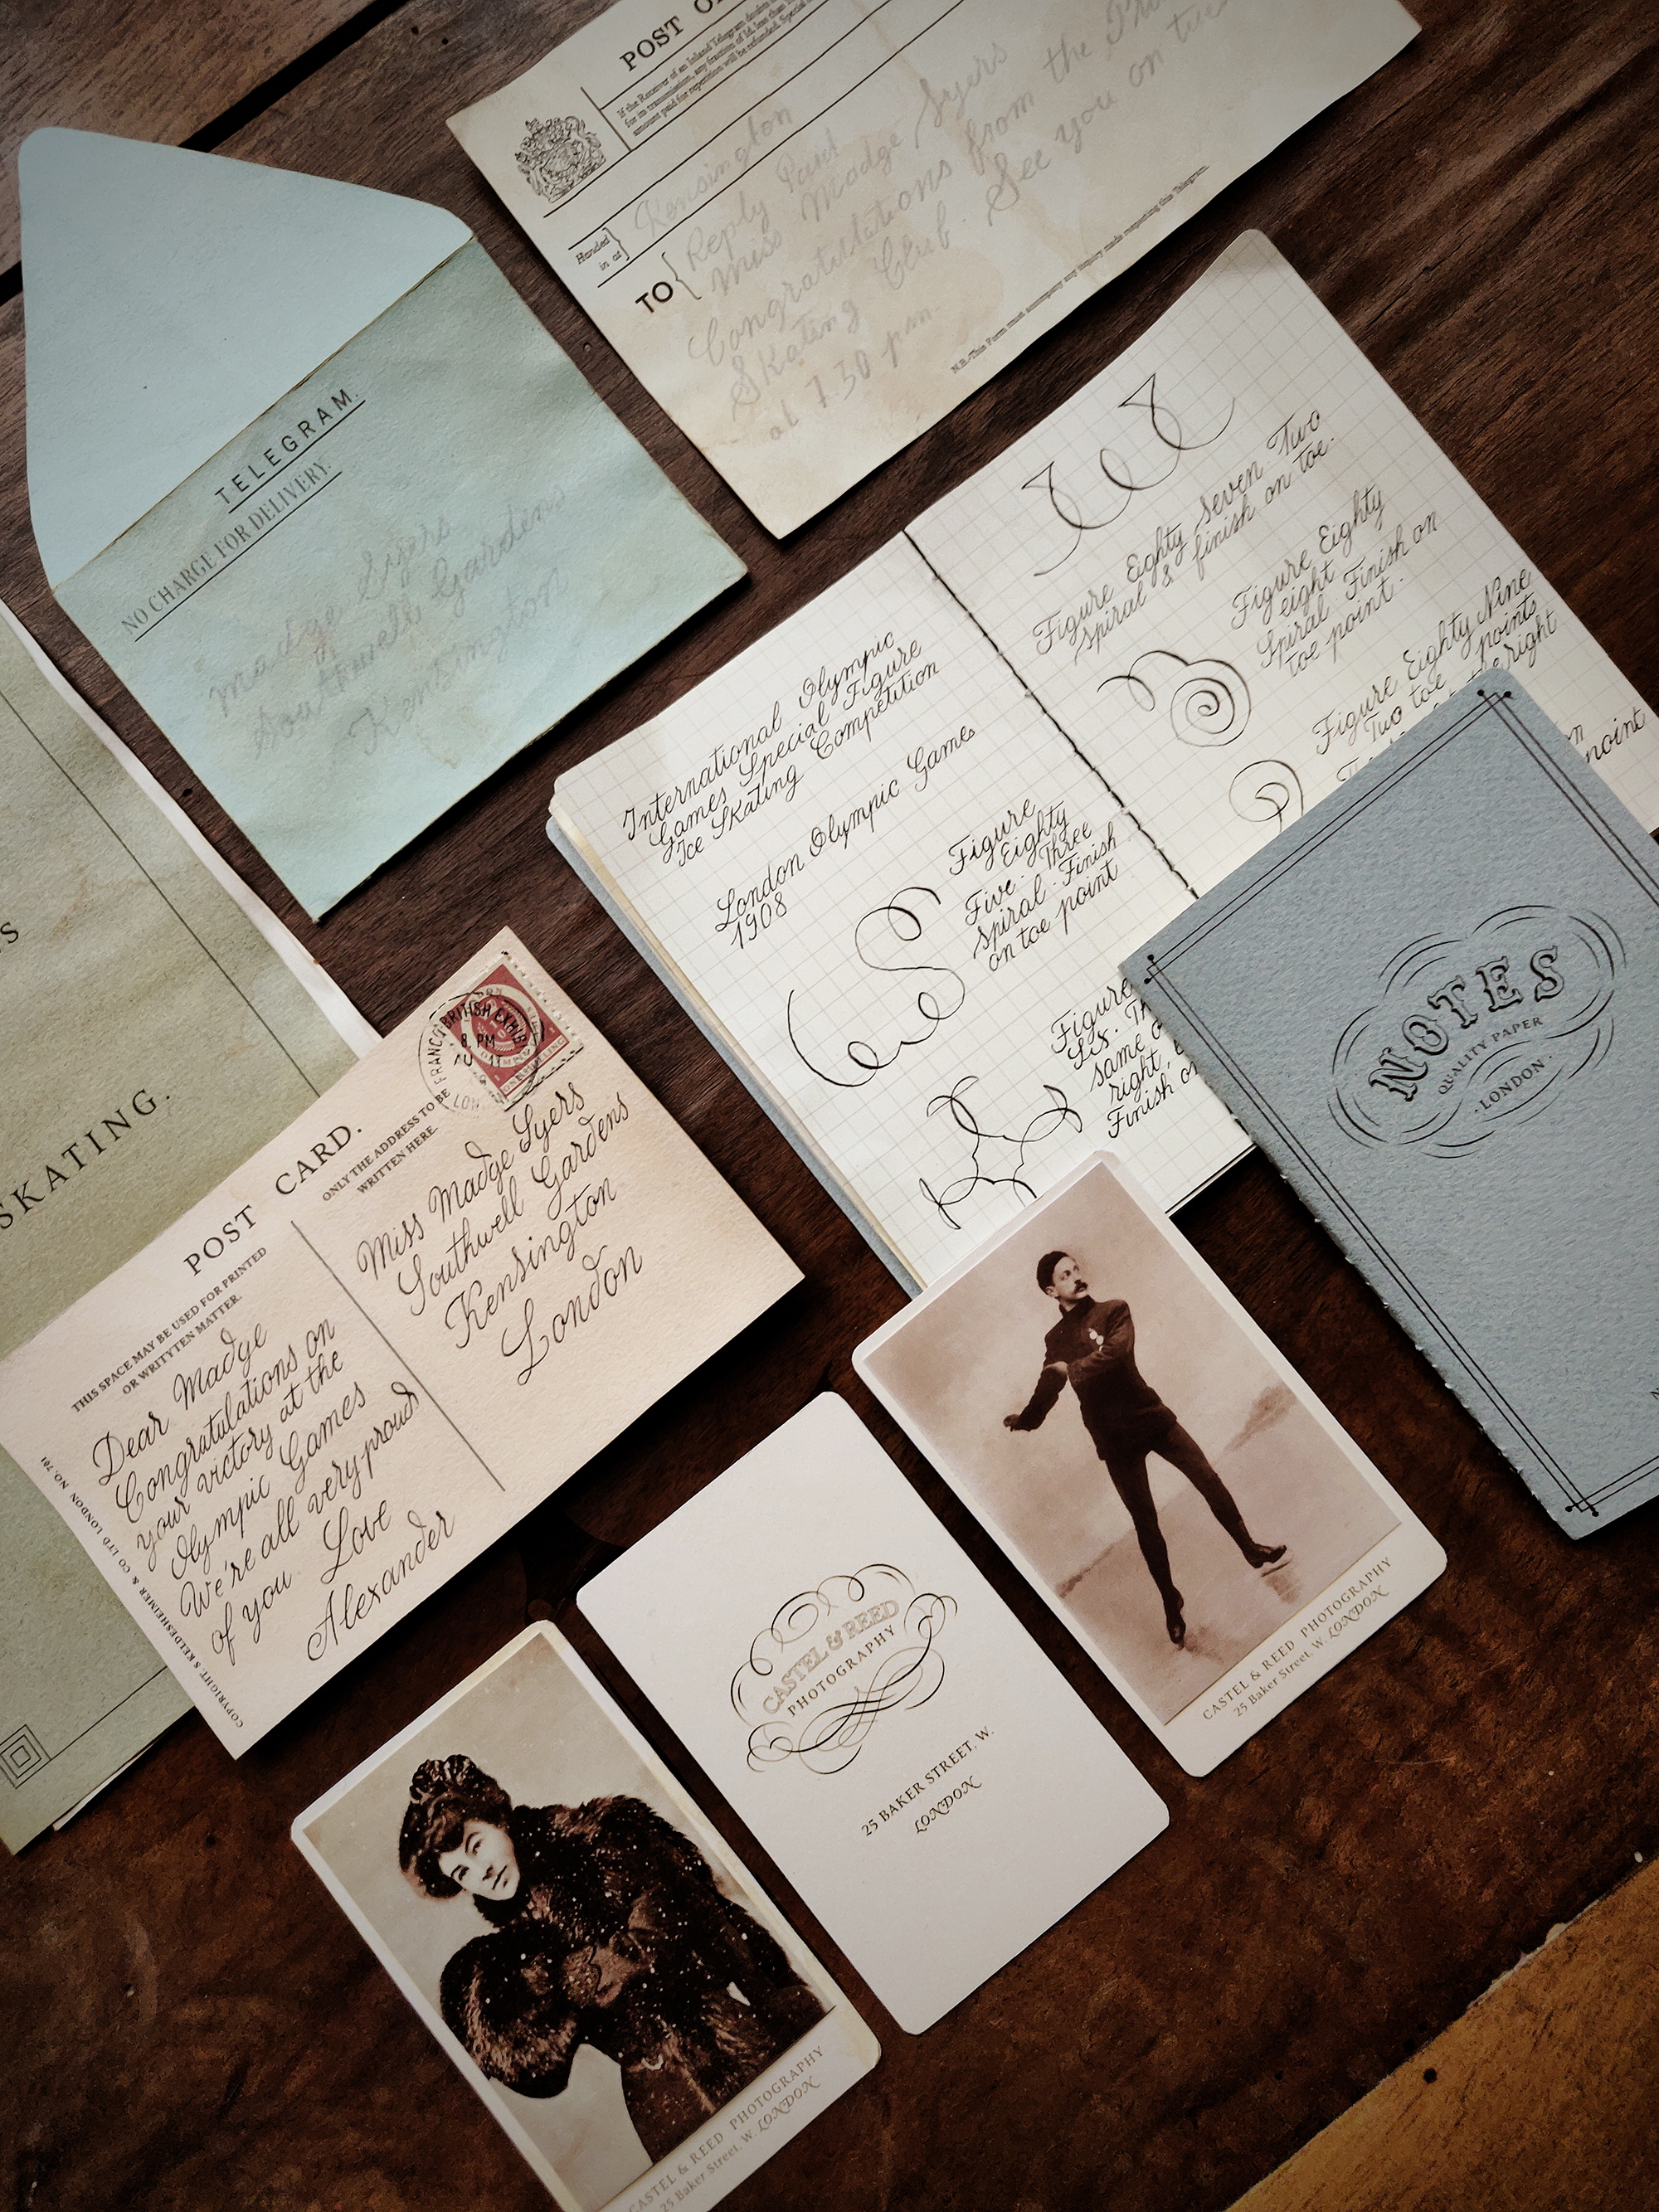 POST
If the Receiver of an Inland Telegram
Handed
in at
Kensington
TO
Reply Paid
Miss Madge Syers
Congratulations from the
Skating Club. See you on
at 7.30 pm.
N.B.-This Form must accompany any inquiry made respecting this Telegram.
TELEGRAM.
NO CHARGE FOR DELIVERY.
Madge Syers
Southwell Gardens
Kensington
International Olympic
Games Special Figure
Ice Skating Competition
London Olympic Games
1908
Figure
Eighty
Five. Three
spiral. Finish
on toe point
Figure
same
right,
Finish
Figure Eighty Seven Two
spiral & finish on toe.
Figure Eighty
eight
Spiral Finish on
toe point.
Figure Eighty Nine
Two toe points
right
point
NOTES
QUALITY PAPER
·LONDON·
SKATING.
POST CARD.
THIS SPACE MAY BE USED FOR PRINTED
OR WRITYTEN MATTER.
ONLY THE ADDRESS TO BE
WRITTEN HERE.
BRITISH
8. PM
Dear Madge
Congratulations on
your victory at the
Olympic Games
We're all very proud
of you. Love
Alexander
Miss Madge Syers
Southwell Gardens
Kensington
London
COPYRIGHT SKELDESHEIMER & CO LTD LONDON NO. 761
CASTEL & REED PHOTOGRAPHY
25 Baker Street, W. LONDON
CASTEL & REED
PHOTOGRAPHY
25 BAKER STREET, W.
LONDON
CASTEL & REED PHOTOGRAPHY
25 Baker Street, W. LONDON